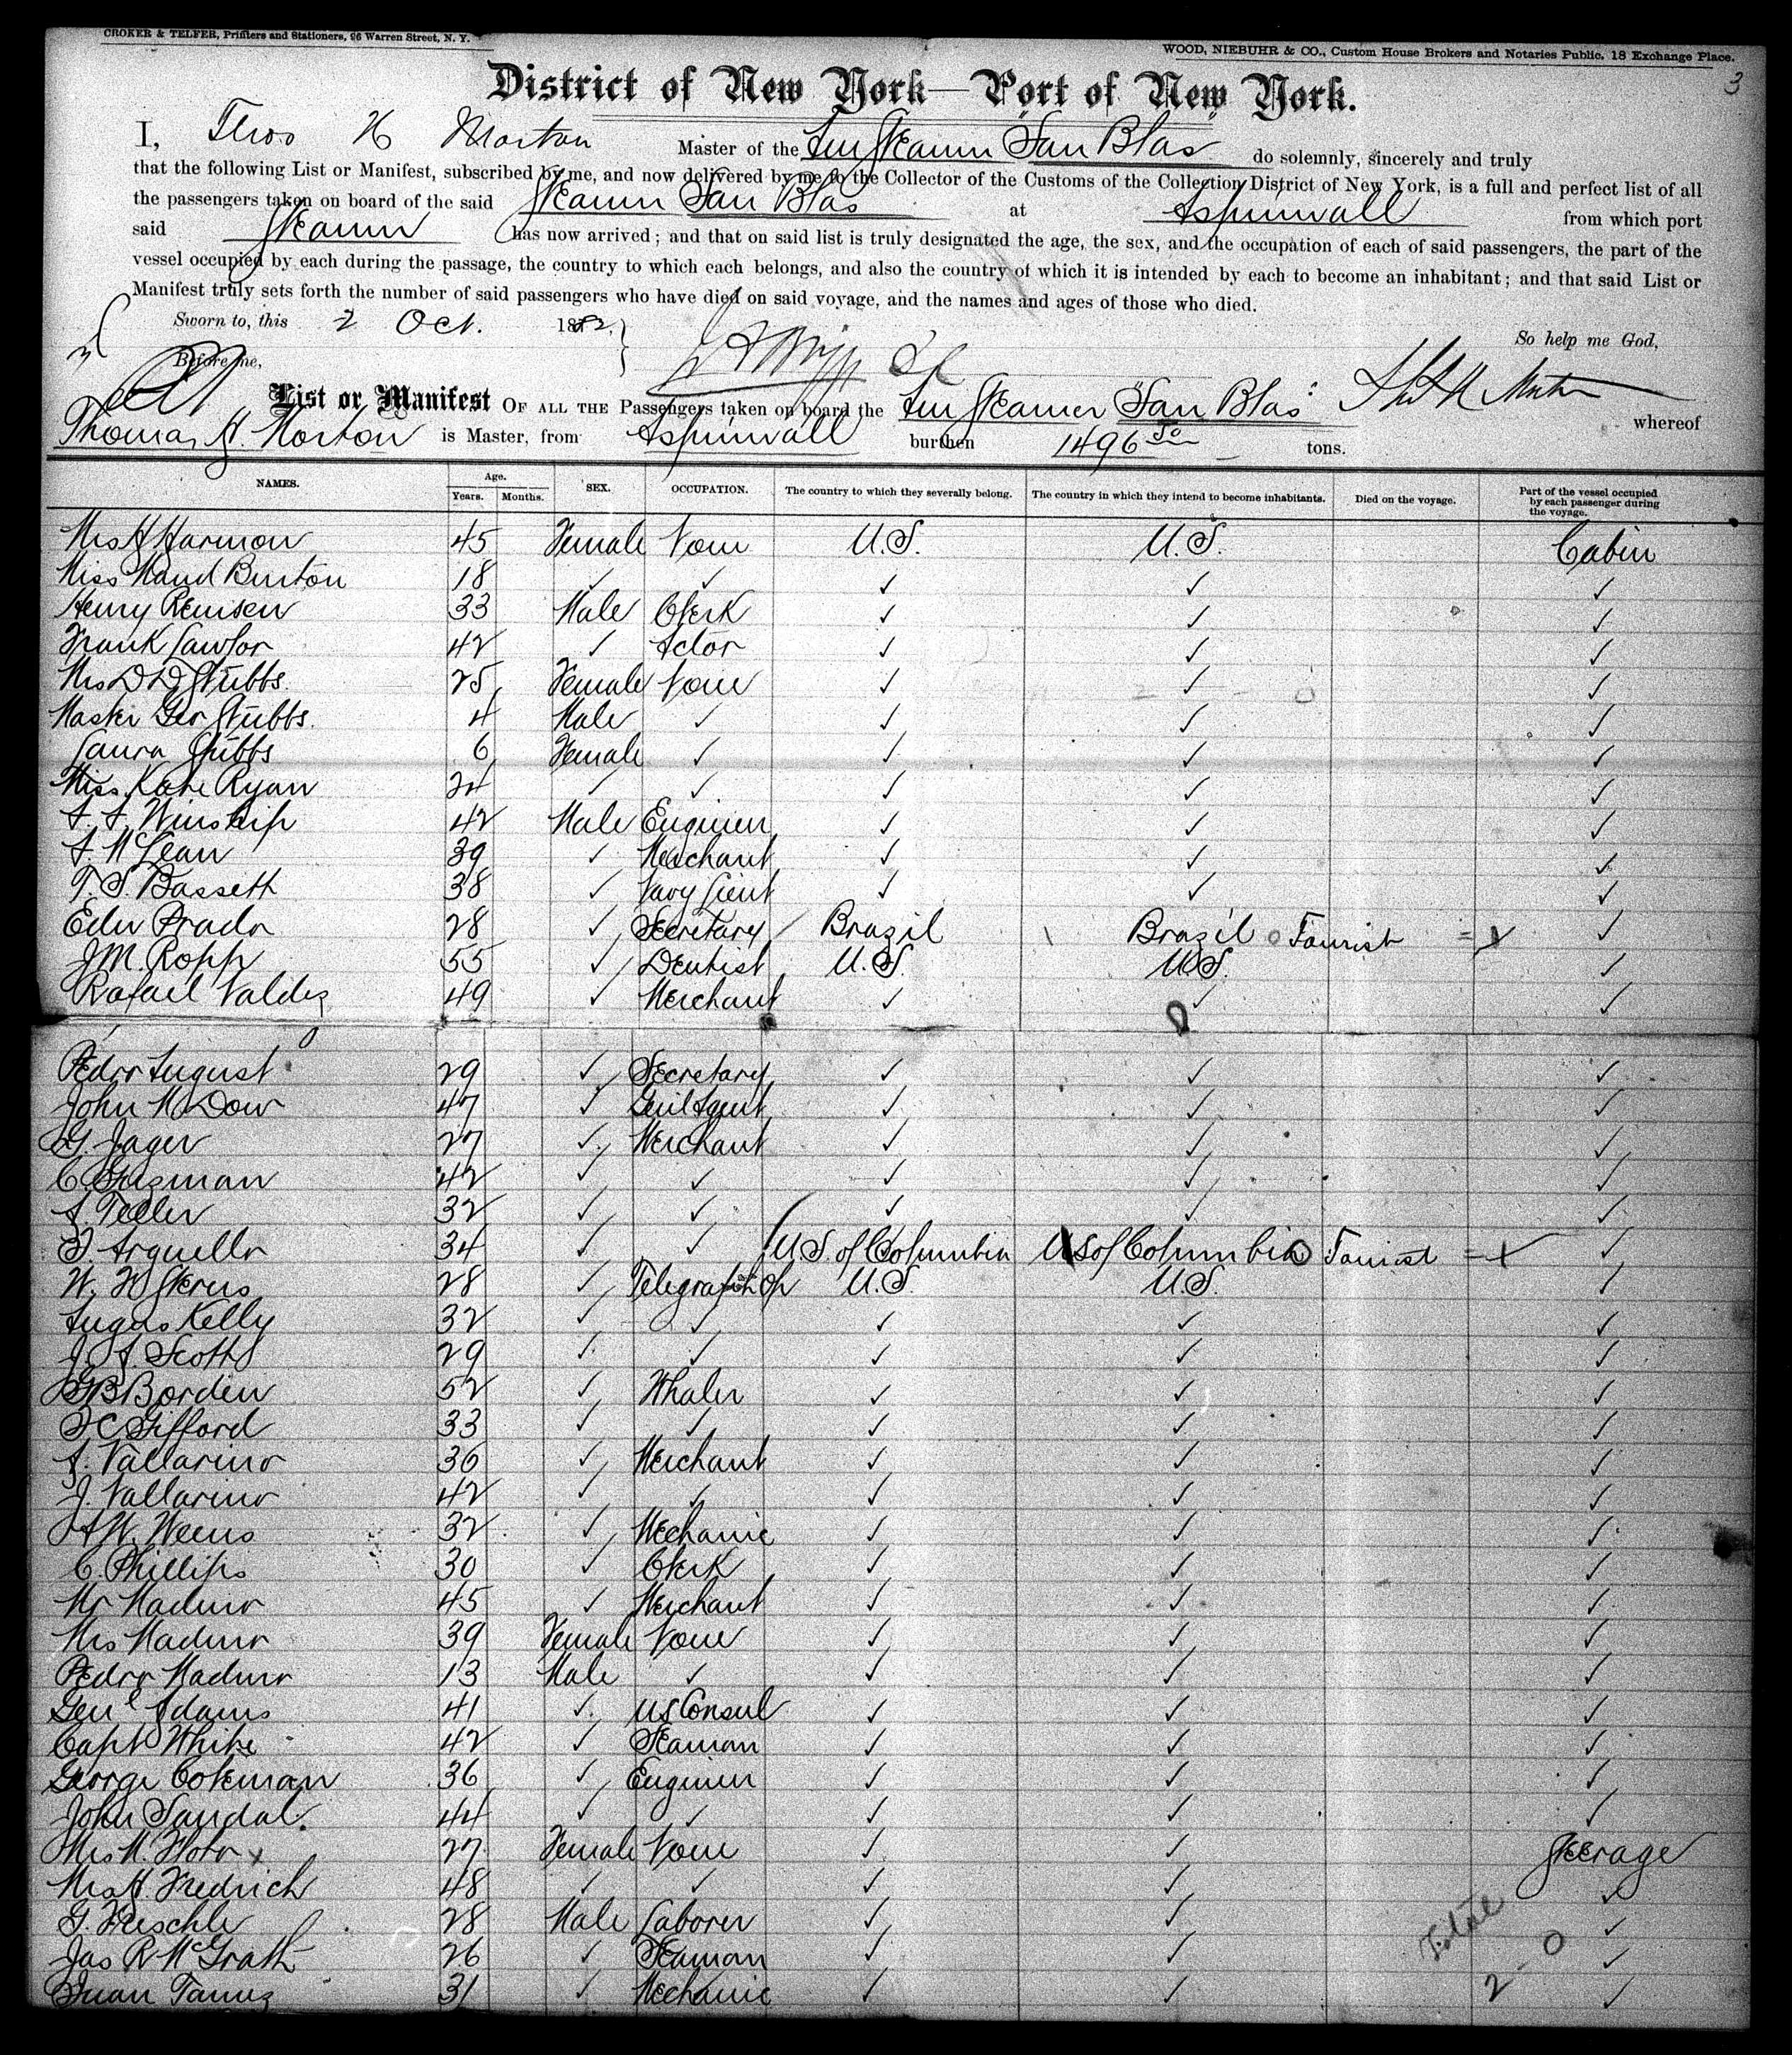 CROKER & TELFER, Printers and Stationers, 96 Warren Street, N. Y.
WOOD, NIEBUHR & CO., Custom House Brokers and Notaries Public, 18 Exchange Place.
3
District of New York—Port of New York.
I, Thos H Morton Master of the Am Steamer "San Blas" do solemnly, sincerely and truly
that the following List or Manifest, subscribed by me, and now delivered by me to the Collector of the Customs of the Collection District of New York, is a full and perfect list of all
the passengers taken on board of the said Steamer San Blas at Aspinwall from which port
said Steamer has now arrived; and that on said list is truly designated the age, the sex, and the occupation of each of said passengers, the part of the
vessel occupied by each during the passage, the country to which each belongs, and also the country of which it is intended by each to become an inhabitant; and that said List or
Manifest truly sets forth the number of said passengers who have died on said voyage, and the names and ages of those who died.
Sworn to, this 2 Oct. 1882,
So help me God,
Before me,
List or Manifest OF ALL THE Passengers taken on board the Am Steamer "San Blas" whereof
Thomas H. Morton is Master, from Aspinwall burthen 1496 50 tons.
NAMES. Age. Years. Months. SEX. OCCUPATION. The country to which they severally belong. The country in which they intend to become inhabitants. Died on the voyage. Part of the vessel occupied by each passenger during the voyage.
Mrs H Harmon 45 Female None U.S. U.S. Cabin
Miss Maud Burton 18 ✓ ✓ ✓ ✓ ✓
Henry Remsen 33 Male Clerk ✓ ✓ ✓
Frank Lawlor 42 ✓ Actor ✓ ✓ ✓
Mrs D D Stubbs 25 Female None ✓ ✓ ✓
Master Geo Stubbs 4 Male ✓ ✓ ✓ ✓
Laura Stubbs 6 Female ✓ ✓ ✓ ✓
Miss Kate Ryan 24 ✓ ✓ ✓ ✓ ✓
A. A. Winship 42 Male Engineer ✓ ✓ ✓
A. McLean 39 ✓ Merchant ✓ ✓ ✓
F. S. Bassett 38 ✓ Navy Lieut ✓ ✓ ✓
Edw Prado 28 ✓ Secretary Brazil Brazil Tourist ✓
J M. Ropp 55 ✓ Dentist U.S. U.S. ✓
Rafael Valdez 49 ✓ Merchant ✓ ✓ ✓
Pedro August 29 ✓ Secretary ✓ ✓ ✓
John M Dow 47 ✓ Genl Agent ✓ ✓ ✓
G. Jager 27 ✓ Merchant ✓ ✓ ✓
C. Guzman 42 ✓ ✓ ✓ ✓ ✓
A. Teller 32 ✓ ✓ ✓ ✓ ✓
F. Arguello 34 ✓ ✓ U.S. of Columbia U S of Columbia Tourist ✓
W. W. 28 ✓ Telegraph Op U.S. U.S. ✓
Angus Kelly 32 ✓ ✓ ✓ ✓ ✓
J. A. Scott 29 ✓ ✓ ✓ ✓ ✓
G B Borden 52 ✓ Whaler ✓ ✓ ✓
F C Gifford 33 ✓ ✓ ✓ ✓ ✓
A. Vallarino 36 ✓ Merchant ✓ ✓ ✓
J. Vallarino 42 ✓ ✓ ✓ ✓ ✓
A W. Weems 32 ✓ Mechanic ✓ ✓ ✓
C. Phillips 30 ✓ Clerk ✓ ✓ ✓
Mr Maduro 45 ✓ Merchant ✓ ✓ ✓
Mrs Maduro 39 Female None ✓ ✓ ✓
Pedro Maduro 13 Male ✓ ✓ ✓ ✓
Genl Adams 41 ✓ US Consul ✓ ✓ ✓
Capt White 42 ✓ Seaman ✓ ✓ ✓
George Coleman 36 ✓ Engineer ✓ ✓ ✓
John Sandal. 44 ✓ ✓ ✓ ✓ ✓
Mrs M. Floto x 27 Female None ✓ ✓ Steerage
Mrs H. Fredrich 48 ✓ ✓ ✓ ✓ ✓
G. 28 Male Laborer ✓ ✓ ✓
Jas R McGrath 26 ✓ Seaman ✓ ✓ ✓
Juan 31 ✓ Mechanic ✓ ✓ ✓
Total
2 - 0